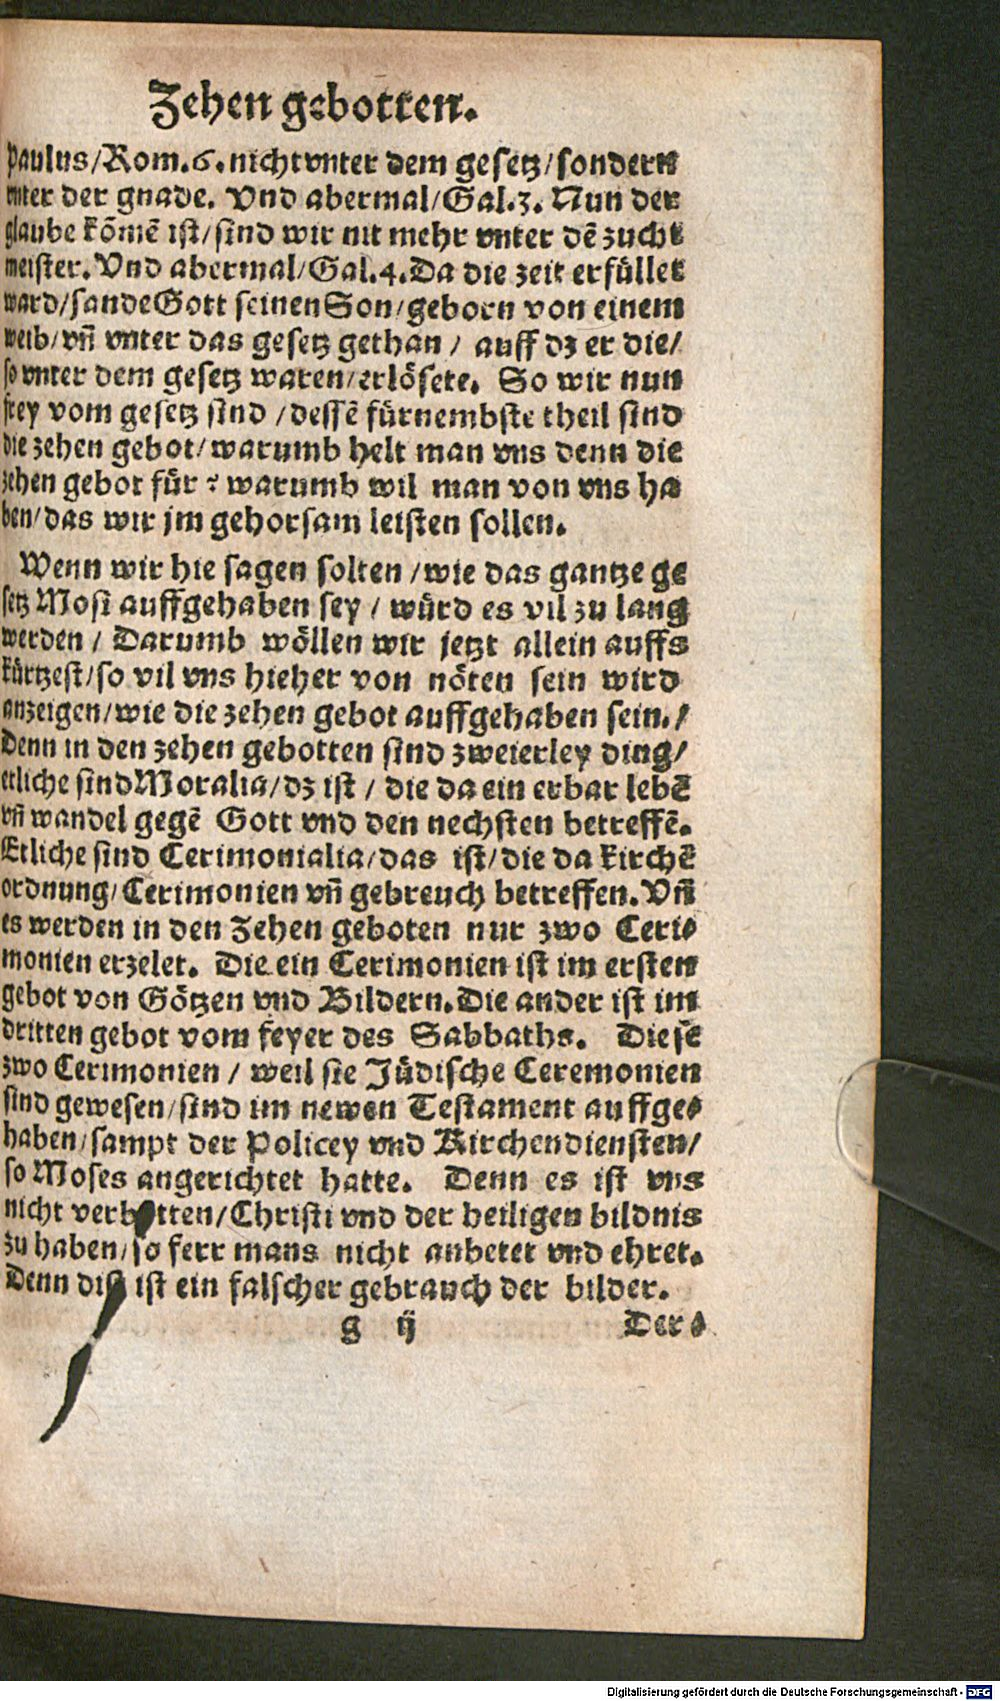 Zehen gebotten.
Paulus/Rom.6.nicht vnter dem gesetz/sondern
vnter der gnade. Vnd abermal/Gal.3. Nun der
glaube kõmẽ ist/sind wir nit mehr vnter dẽ zucht
meister. Vnd abermal/Gal.4.Da die zeit erfüllet
ward/sande Gott seinen Son/geborn von einem
weib/vñ vnter das gesetz gethan / auff dz er die/
so vnter dem gesetz waren/erlösete. So wir nun
frey vom gesetz sind /dessẽ fürnembste theil sind
die zehen gebot/warumb helt man vns denn die
zehen gebot für? warumb wil man von vns ha
ben/das wir jm gehorsam leisten sollen.
Wenn wir hie sagen solten /wie das gantze ge
setz Mosi auffgehaben sey / würd es vil zu lang
werden / Darumb wöllen wir jetzt allein auffs
kürtzest/so vil vns hieher von nöten sein wird
anzeigen/wie die zehen gebot auffgehaben sein./
Denn in den zehen gebotten sind zweierley ding/
etliche sind Moralia/dz ist / die da ein erbar lebẽ
vñ wandel gegẽ Gott vnd den nechsten betreffẽ.
Etliche sind Cerimonialia/das ist/die da kirchẽ
ordnung/Cerimonien vñ gebreuch betreffen. Vñ
es werden in den Zehen geboten nur zwo Ceri⸗
monien erzelet. Die ein Cerimonien ist im ersten
gebot von Götzen vnd Bildern. Die ander ist im
dritten gebot vom feyer des Sabbaths. Diese
zwo Cerimonien / weil sie Jüdische Ceremonien
sind gewesen/sind im newen Testament auffge⸗
haben/sampt der Policey vnd Kirchendiensten/
so Moses angerichtet hatte. Denn es ist vns
nicht verbotten/Christi vnd der heiligen bildnis
zu haben/so ferr mans nicht anbetet vnd ehret.
Denn diß ist ein falscher gebrauch der bilder.
g ij Der⸗
Digitalisierung gefördert durch die Deutsche Forschungsgemeinschaft - DFG